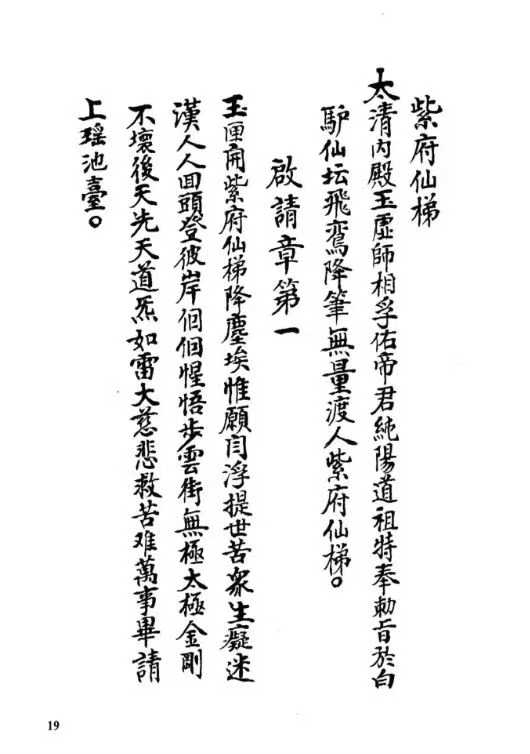 紫府仙梯
太清內殿玉虛師相孚佑帝君純陽道祖特奉勅旨於白
馿仙坛飛鸞降筆無量渡人紫府仙梯。
啟請章第一
玉匣開紫府仙梯降塵埃惟願閆浮提世苦衆生癡迷
漢人人回頭登彼岸個個惺悟步雲街無極太極金剛
不壞後天先天道炁如雷大慈悲救苦难萬事畢請
上瑶池臺。
19